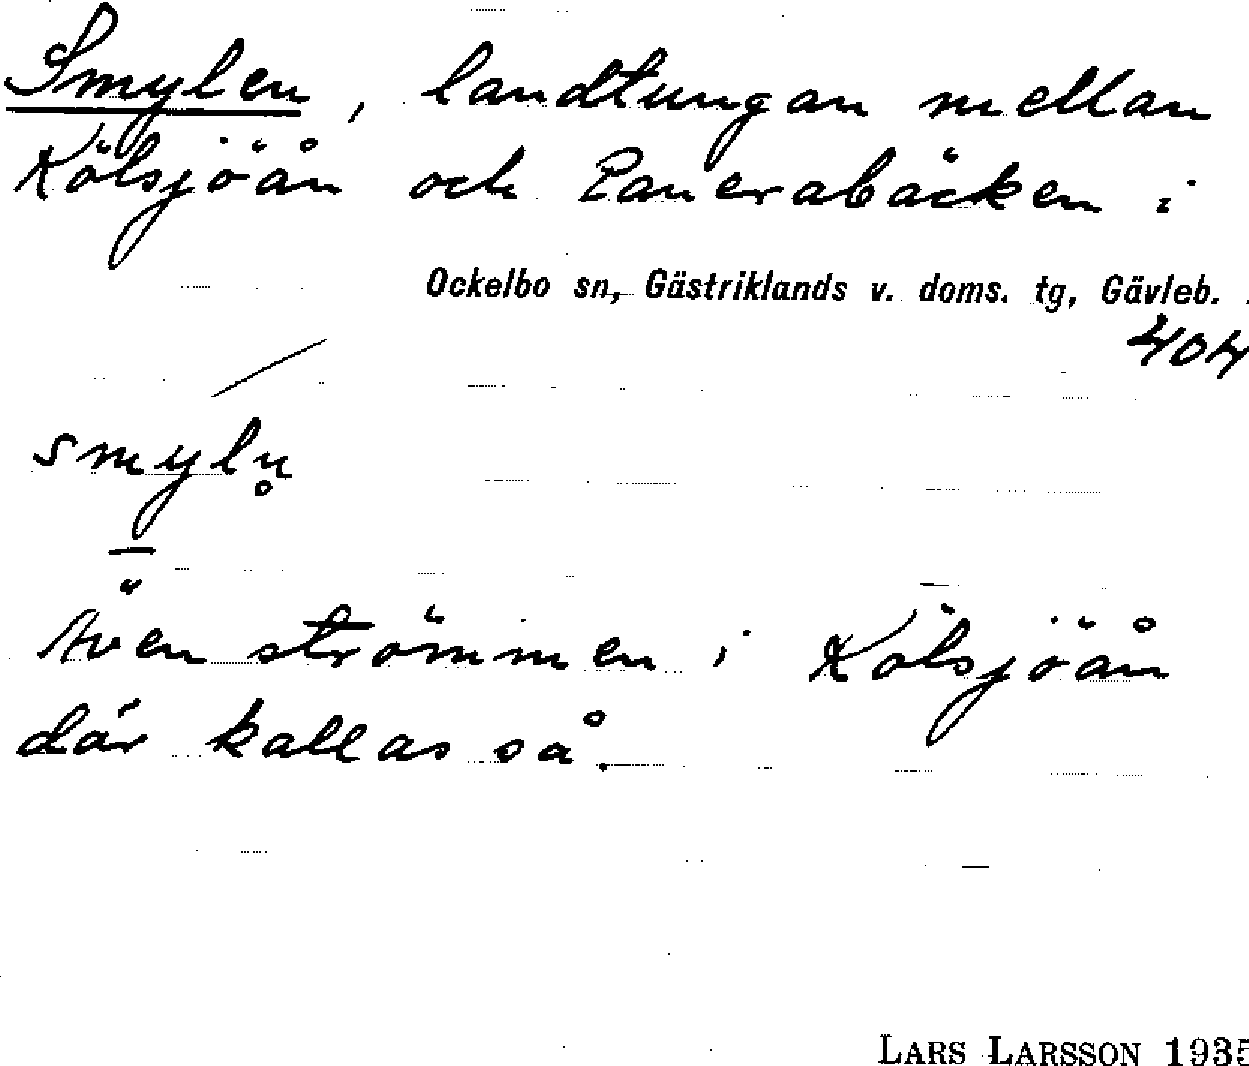 Smylen, landtungan mellan
Kölsjöån och Panerabäcken i
Ockelbo sn, Gästriklands v. doms. tg, Gävleb.
404
smyln̥
Även strömmen i Kölsjöån
där kallas så.
LARS LARSSON 1935